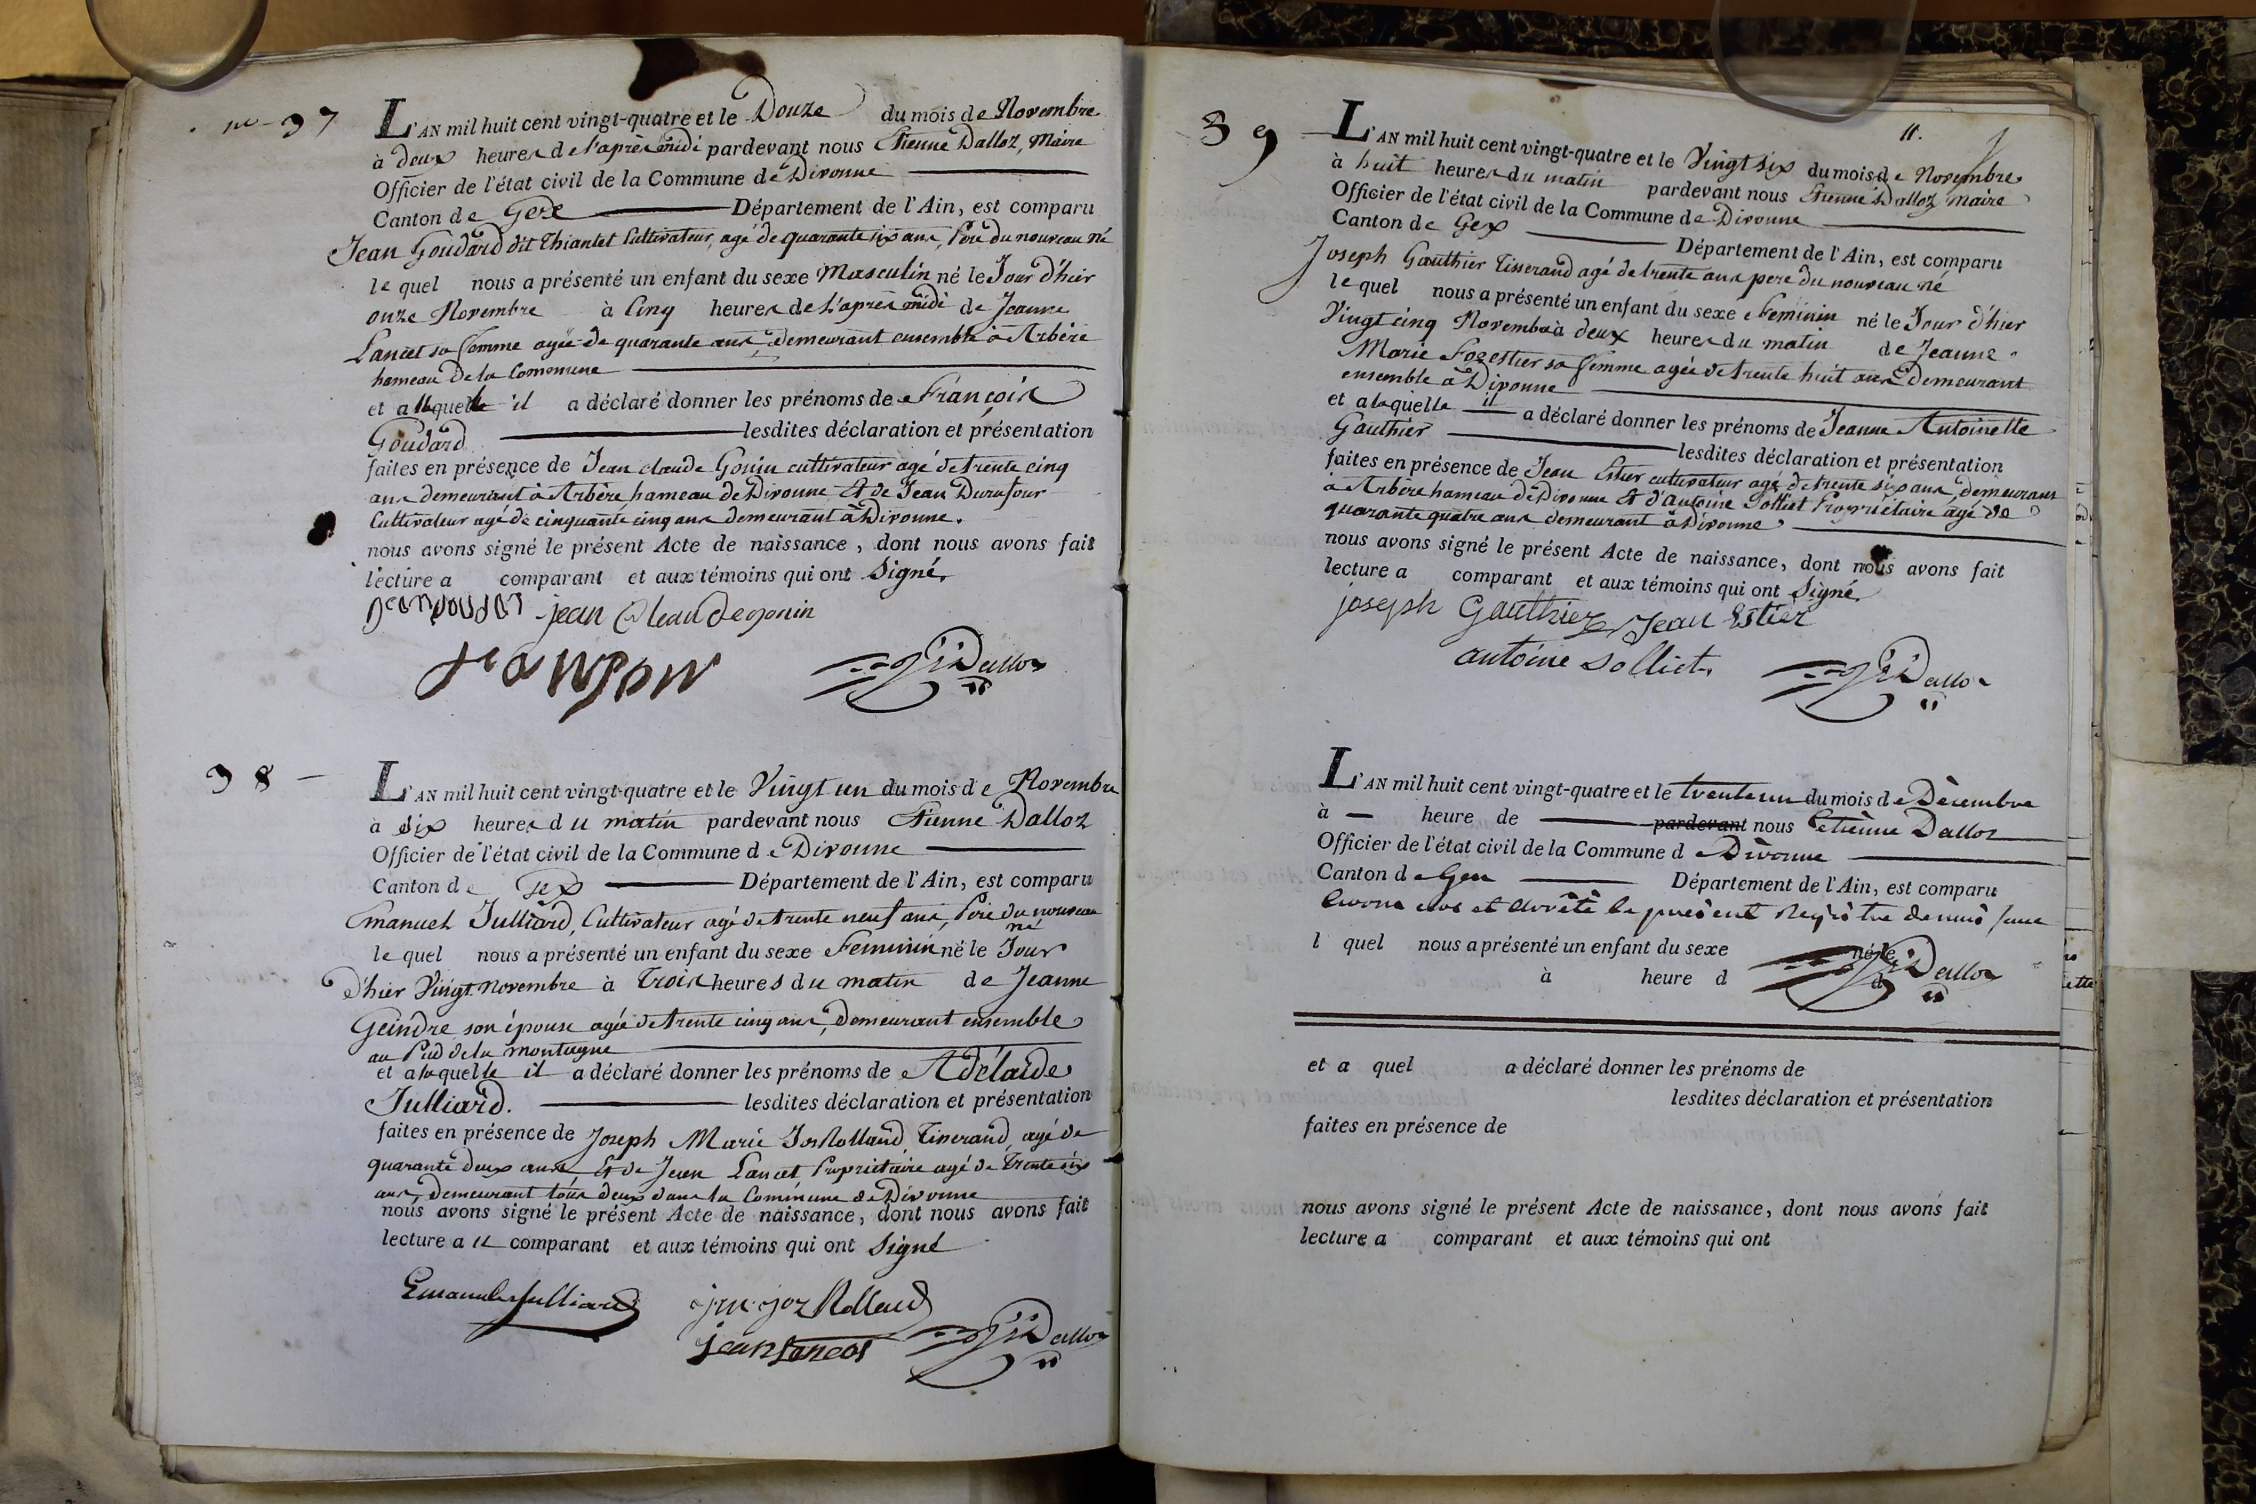 no 37
L'AN mil huit cent vingt-quatre et le Douze du mois de Novembre
à deux heures de l'après midi pardevant nous Etienne Dalloz, Maire
Officier de l'état civil de la Commune de Divonne
Canton de Gex Département de l'Ain, est comparu
Jean Goudard dit Thiantet Cultivateur, agé de quarante six ans, Père du nouveau né
le quel nous a présenté un enfant du sexe Masculin né le Jour d'hier
onze Novembre à Cinq heures de l'après midi de Jeanne
Lancet sa femme agée de quarante ans, demeurant ensemble à Arbère
hameau de la Commune
et auquel il a déclaré donner les prénoms de François
Goudard lesdites déclaration et présentation
faites en présence de Jean claude Gonin cultivateur agé de trente cinq
ans demeurant à Arbère hameau de Divonne Et de Jean Durafour
Cultivateur agé de cinquante cinq ans demeurant à Divonne.
nous avons signé le présent Acte de naissance, dont nous avons fait
lecture a comparant et aux témoins qui ont Signé.
jean Cleaude gonin
Dalloz
38
L'AN mil huit cent vingt-quatre et le Vingt un du mois de Novembre
à six heures du matin pardevant nous Etienne Dalloz
Officier de l'état civil de la Commune de Divonne
Canton de Gex Département de l'Ain, est comparu
Emanuel Julliard, Cultivateur agé de trente neuf ans, Père du nouveau né
le quel nous a présenté un enfant du sexe Feminin né le Jour
d'hier Vingt Novembre à Trois heures du matin de Jeanne
Geindre son épouse agée de trente cinq ans, demeurant ensemble
au Pied de la montagne
et a laquelle il a déclaré donner les prénoms de Adélaïde
Julliard. lesdites déclaration et présentation
faites en présence de Joseph Marie Jos Rolland, Tisserand, agé de
quarante deux ans, Et de Jean Lancet, Propriétaire agé de Trente six
ans, demeurant tous deux dans la Commune de Divonne
nous avons signé le présent Acte de naissance, dont nous avons fait
lecture a u comparant et aux témoins qui ont Signé
Emanuel Julliard Rolland
jean Dalloz
11.
39
L'AN mil huit cent vingt-quatre et le Vingt six du mois de Novembre
à huit heures du matin pardevant nous Etienne Dalloz Maire
Officier de l'état civil de la Commune de Divonne
Canton de Gex Département de l'Ain, est comparu
Joseph Gauthier Tisserand agé de trente ans pere du nouveau né
le quel nous a présenté un enfant du sexe Feminin né le Jour d'hier
Vingt cinq Novembre à deux heures du matin de Jeanne
Marie Forestier sa femme agée de trente huit ans, demeurant
ensemble à Divonne
et a laquelle il a déclaré donner les prénoms de Jeanne Antoinette
Gauthier lesdites déclaration et présentation
faites en présence de Jean Estier cultivateur agé de trente six ans, demeurant
à Arbère hameau de Divonne Et d'antoine Solliet Propriétaire agé de
quarante quatre ans demeurant à Divonne
nous avons signé le présent Acte de naissance, dont nous avons fait
lecture a comparant et aux témoins qui ont Signé
joseph Gauthier Jean Estier
antoine Solliet Dalloz
L'AN mil huit cent vingt-quatre et le trente un du mois de Décembre
à heure de pardevant nous Etienne Dalloz
Officier de l'état civil de la Commune de Divonne
Canton de Gex Département de l'Ain, est comparu
avons clos et arrêté le présent Registre
l quel nous a présenté un enfant du sexe né le
à heure d d Dalloz
et a quel a déclaré donner les prénoms de
lesdites déclaration et présentation
faites en présence de
nous avons signé le présent Acte de naissance, dont nous avons fait
lecture a comparant et aux témoins qui ont